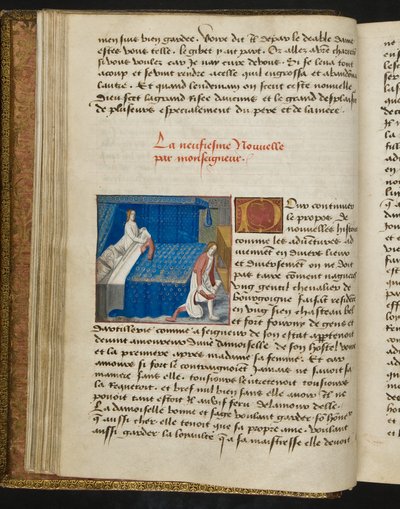 mensure bien gardee. Voire dit il de par le deable dame
estes vous telle. le gibet y ait part. Or allez autre chartier
si vous voulez car Jay cure de vous. Et se leva tout
acoup et se vint rendre a celle quil engrossa et abandonna
lautre. Et quand lendemain on sceut ceste nouvelle
Dieu scet la grand risee daucuns et le grand desplaisir
de plusieurs especialement du pere et de la mere.
La neufiesme Nouvelle
par monseigneur.
Pour continuer
le propos de
nouvelles histoires
comme les adventures ad
viennent en divers lieux
et diversement on ne doit
pas taire comment nagueres
ung gentil chevalier de
bourgoigne faisant residence
en ung sien chasteau bel
et fort fourny de gens et
dartillerie comme a seigneur de son estat appartenoit
devint amoureux dune damoiselle de son hostel voire
et la premiere apres madame sa femme. Et car
amours si fort le contraignoient Jamais ne savoit sa
maniere sans elle. tousiours lentretenoit tousiours
la requeroit. et bref nul bien sans elle avoir Il ne
pouoit tant estoit Il au vif feru de lamour delle.
La damoiselle bonne et sage voulant garder son honneur
que aussi cher elle tenoit que sa propre ame. voulant
aussi garder la loyaulte que a sa maistresse elle devoit